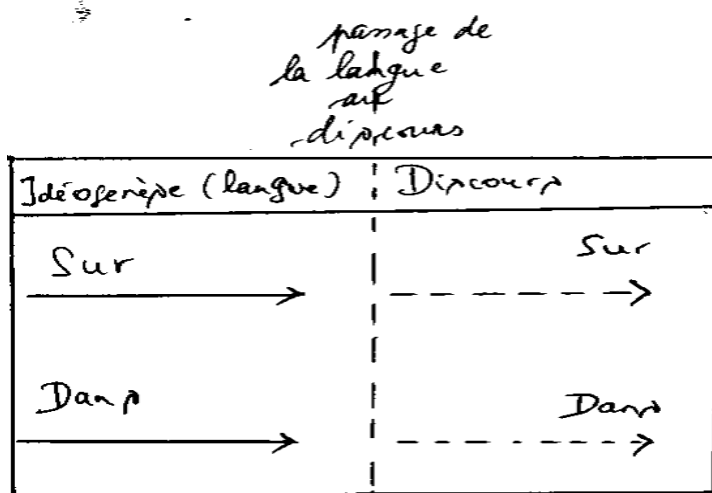 passage de
la langue
au
discours
Idéogenèse (langue) Discours
Sur Sur
Dans Dans